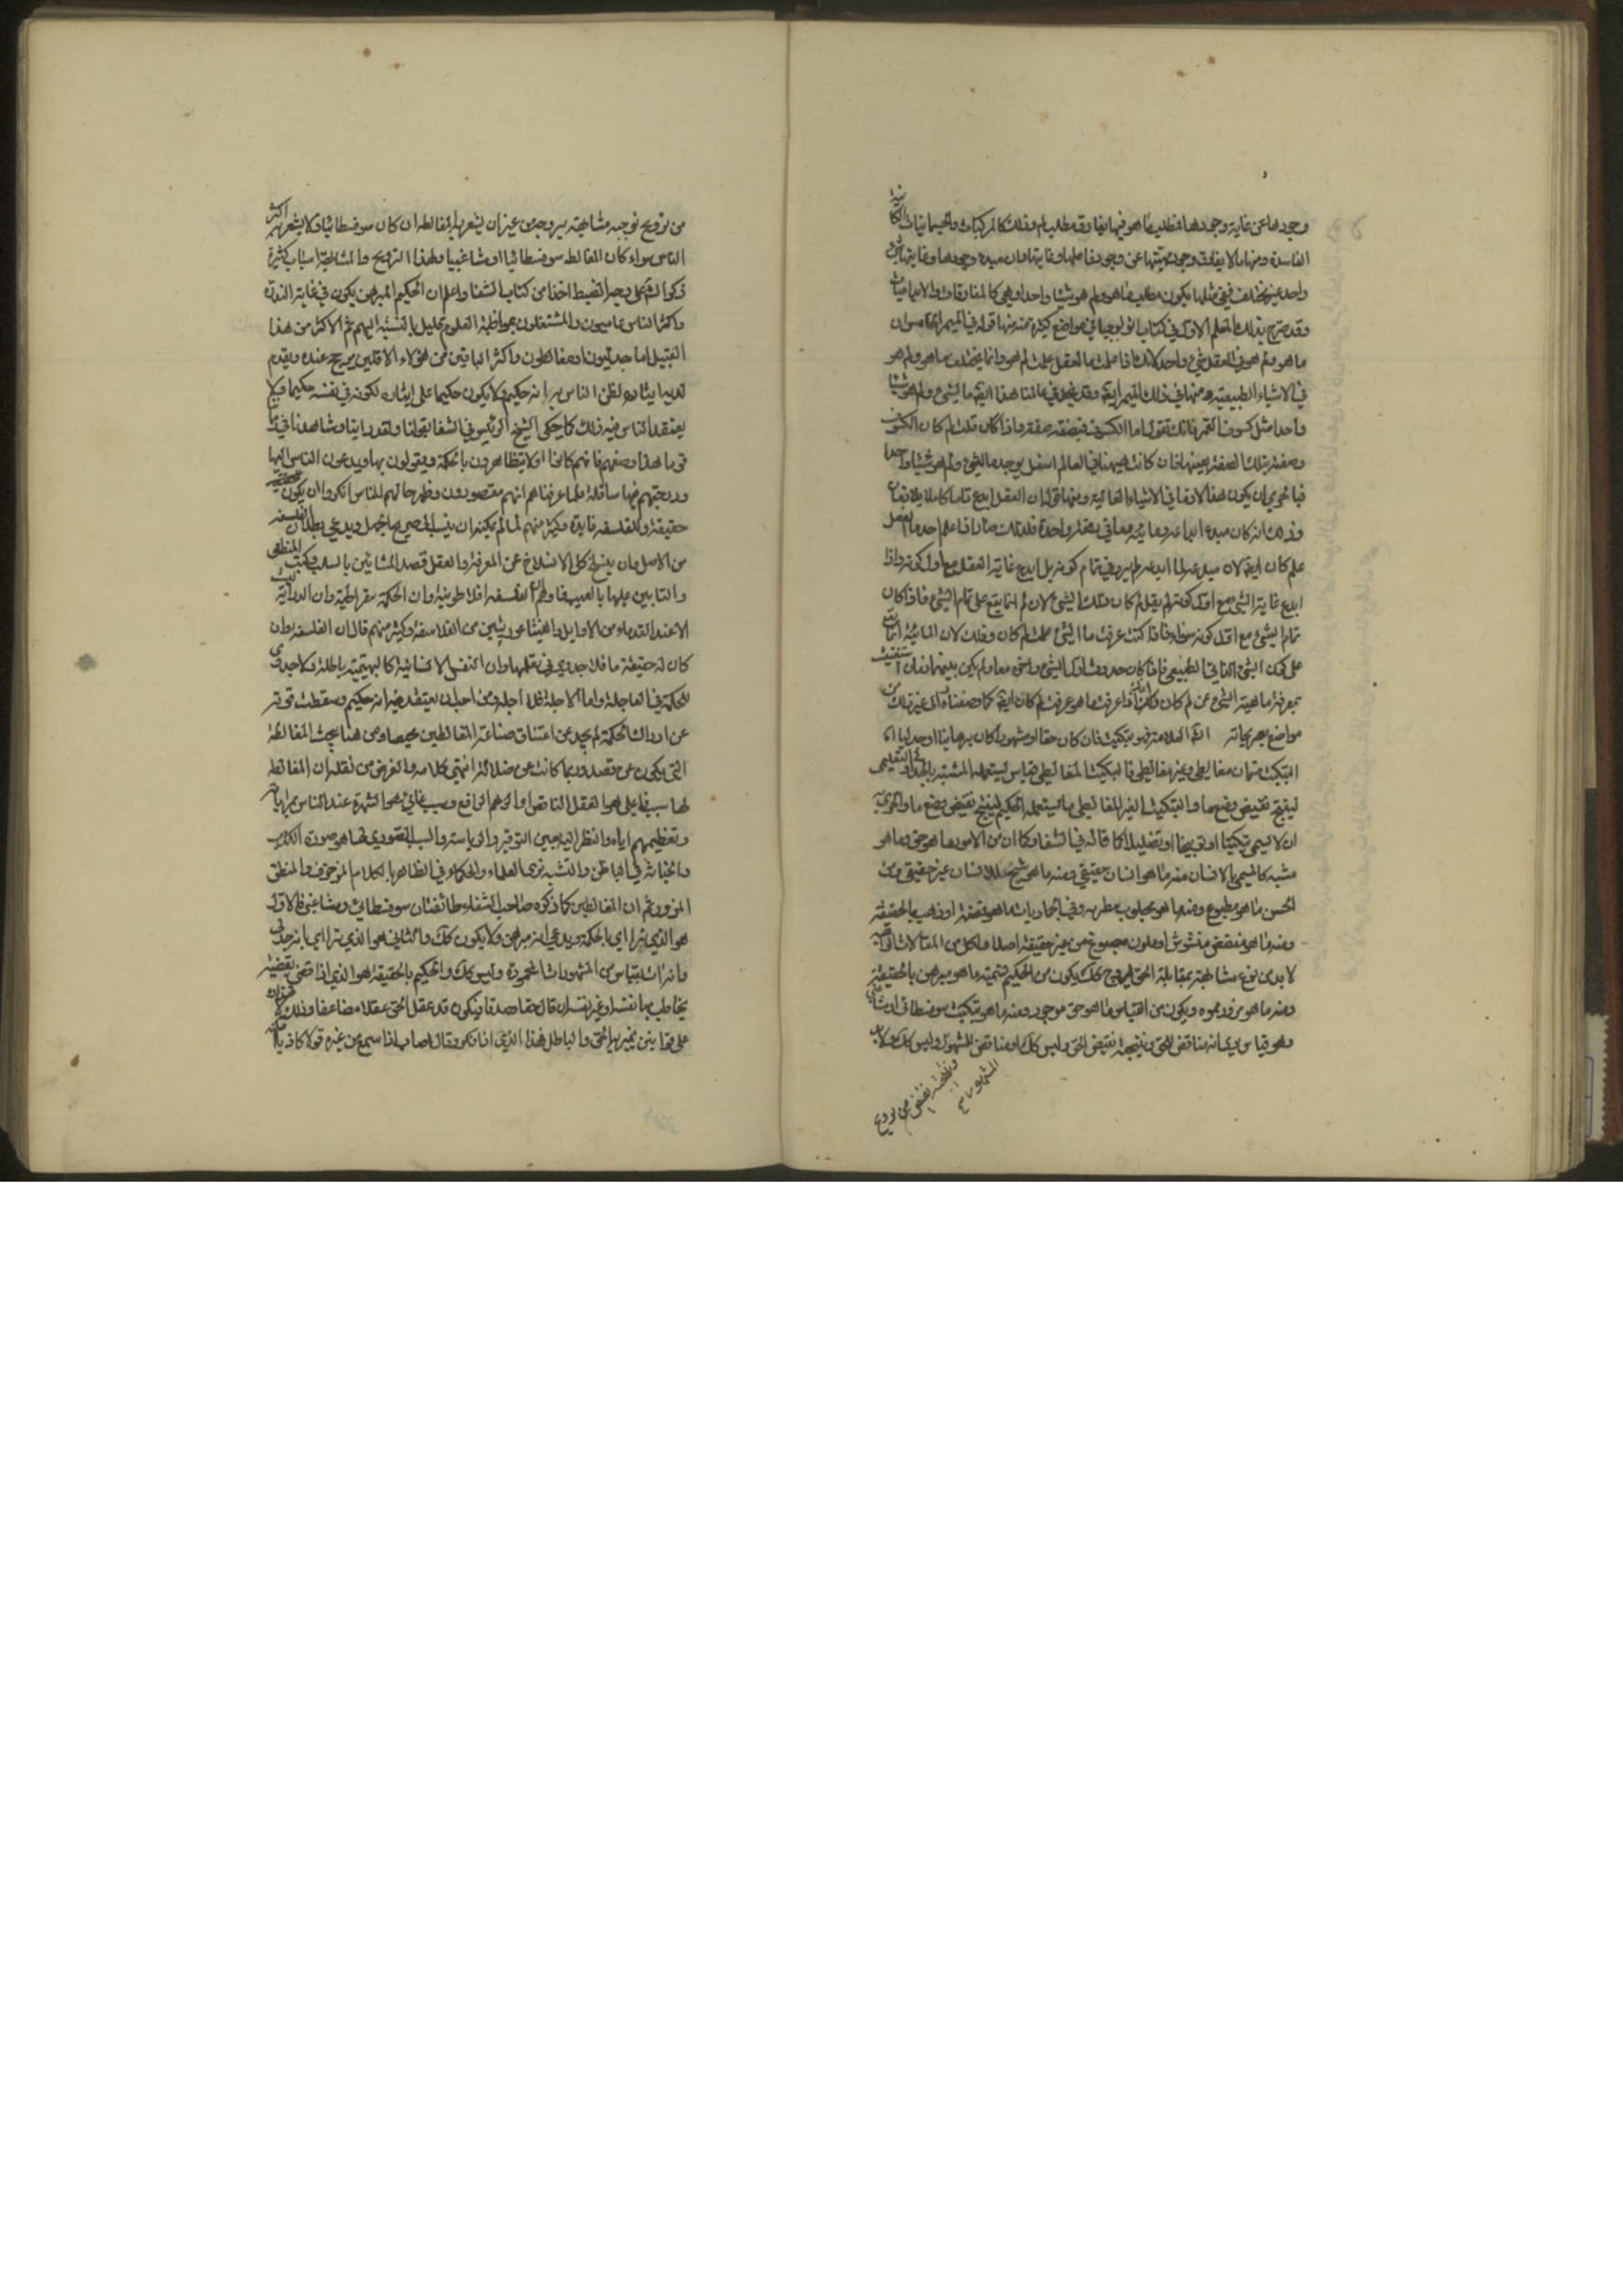 وجودها عن غاية وجودها فمطلب ما هو فيها يفارق مطلب لم وذلك كالمركبات والجسمانيات الكائنة
الفاسدة ومنها ما لا يفارق وجود هويتها عن وجود فاعلها وغايتها فان مبدء وجودها وغايتها شئ
واحد غير مختلف ففي مثلها يكون مطلب ما هو ولم هو شيئا واحدا وهي كالمفارقات والابداعيات
وقد صرح بذلك المعلم الاول في كتاب اثولوجيا في مواضع كثيرة منه منها قوله في الميمر الخامس وان
ما هو ولم هو في العقل شئ واحد لانك اذا علمت ما العقل علمت لم هو وانما يختلف ما هو ولم هو
في الاشياء الطبيعية ومنها في ذلك الميمر ايضا وقد نجد في عالمنا هذا ايضا ما الشئ ولم هو شيئا
واحدا مثل كسوف القمر فانك تقول ما الكسوف فتصفه بصفة ما واذا قلت لم كان الكسوف
وصفته بتلك الصفة بعينها فان كانت ههنا في العالم الاسفل يوجد ما الشئ ولم هو شيئا واحدا
فبالحري ان يكون هذا لازما في الاشياء العالية ومنها قوله ان العقل ابدع تاما كاملا بلا زمان
وذلك انه كان مبدء ابداعه وماهيته معا في دفعة واحدة فلذلك صار اذا علم احد ما العقل
علم لم كان ايضا لان مبدعه لما ابدعه لم يرو في تمام كونه بل ابدع غاية العقل مع اول كونه واذا
ابدع غاية الشئ مع اول كونه لم يقل لم كان ذلك الشئ لان لم انما يقع على تمام الشئ فاذا كان
تمام الشئ مع اول كونه سواء فاذا كنت عرفت ما الشئ علمت لم كان وذلك لان المائية انما تقع
على كون الشئ الذاتي الطبيعي فاذا كان حدوث اول الشئ واخره معا ولم يكن بينهما زمان استغنيت
بمعرفة ماهية الشئ عن لم كان وذلك انك اذا عرفت ما هو عرفت لم كان ايضا كما وصفنا الى غير ذلك من
مواضع تصريحاته
التبكيت ضربان مغالطي وغير مغالطي فالتبكيت المغالطي قياس يستعمله المشتبه بالجدلي او التعليمي
لينتج نقيض وضع ما والتبكيت الغير المغالطي ما يستعمله الحكيم لينتج نقيض وضع ما والحري به
ان لا يسمى تبكيتا او توبيخا او تضليلا كما قاله في الشفا وكما ان من الامور ما هو حق وما هو
مشبه كما يسمى بالانسان منه ما هو انسان حقيقي ومنه ما هو شبح للانسان غير حقيقي ومن
الحسن ما هو مطبوع ومنه ما هو مجلوب بتطرية وفي الجماديات ما هو فضة او ذهب بالحقيقة
ومنه ما هو ملون مصبوغ من غير حقيقة اصلا
لا بد من نوع مشابهة بمقابلة الحق كذلك يكون من الحكيم ما هو مبرهن بالحقيقة
ومنه ما هو مزور مموه ويكون من القياس ما هو حق موجود ومنه ما هو تبكيت سوفسطائي او مشاغبي
وهو قياس يرى انه مناقض للحق ونتيجته نقيض الحق وليس كذلك او مناقض للمشهور وليس كذلك ولا بد
ونتيجته نقيض
المشهور
من ترويج بوجه مشابهة يروجه من غير ان يشعر بها المغالط ان كان سوفسطائيا ولا يشعر بها اكثر
الناس سواء كان المغالط سوفسطائيا او مشاغبيا ولهذا الترويج والمشابهة اسباب كثيرة
نذكرها لك على وجه الضبط اخذا من كتاب الشفا واعلم ان الحكيم المبرهن يكون في غاية الندرة
واكثر الناس عاميون والمشتغلون بمواظبة العلوم قليل بالنسبة اليهم ثم الاكثر من هذا
القبيل اما جدليون او مغالطون واكثر الباقين من هؤلاء الاقلين يرجح عنده ويقدم
لديه ايثاره لظن الناس به انه حكيم ولا يكون حكيما على ايثاره لكونه في نفسه حكيما ولا
يعتقد الناس فيه ذلك كما حكى الشيخ الرئيس في الشفا بقوله ولقد راينا وشاهدنا في زماننا
قوما هذا وصفهم فانهم كانوا يتظاهرون بالحكمة ويقولون بها ويدعون الناس اليها
ودرجتهم فيها سافلة فلما عرفناهم انهم مقصرون وظهر حالهم للناس انكروا ان يكون للحكمة
حقيقة وللفلسفة فايدة وكثير منهم لما لم يمكنه ان ينسب الى صريح الجهل ويدعي بطلان الفلسفة
من الاصل وان ينسلخ كل الانسلاخ عن المعرفة والعقل قصد المشائين بالثلب وكتب المنطق
والبانين عليها بالعيب فاوهم ان الفلسفة افلاطونية وان الحكمة سقراطية وان الدراية ليست
الا عند القدماء من الاوايل والفيثاغوريين من الفلاسفة وكثير منهم قال ان الفلسفة وان
كان لها حقيقة ما فلا جدوى في تعلمها وان النفس الانسانية كالبهيمية باطلة ولا جدوى
للحكمة في العاجلة واما الاجلة فلا اجلة ومن احب ان يعتقد فيه انه حكيم وسقطت قوته
عن ادراك الحكمة لم يجد عن اعتناق صناعة المغالطين محيصا ومن هنا نتجت المغالطة
التي تكون عن قصد وربما كانت عن ضلالة انتهى كلامه والغرض من نقله ان المغالطة
لها سبب فاعلي هو العقل الناقص او الوهم الواقع وسبب غائي هو الشهرة عند الناس
وتعظيمهم اياه والنظر اليه بعين التوقير والرياسة والسبب الصوري لها هو صورة الكذب
والخباثة في الباطن والتشبه بزي العلماء والحكماء في الظاهر بالكلام المزخرف والمنطق
المزور ثم ان المغالطين كما ذكره صاحب الشفاء طائفتان سوفسطائي ومشاغبي فالاول
هو الذي تراايى بالحكمة ويدعي انه مبرهن ولا يكون كذلك والثاني هو الذي يتراايى بانه جدلي
وانه ات بقياس من المشهورات المحمودة وليس كذلك والحكيم بالحقيقة هو الذي اذا قضى بقضية
يخاطب بها نفسه او غير نفسه ان قال حقا صدقا فيكون قد عقل الحق عقلا مضاعفا وذلك لاقتداره
على قوانين يميز بها الحق والباطل فهذا الذي اذا فكر وقال اصاب واذا سمع من غيره قولا كاذبا